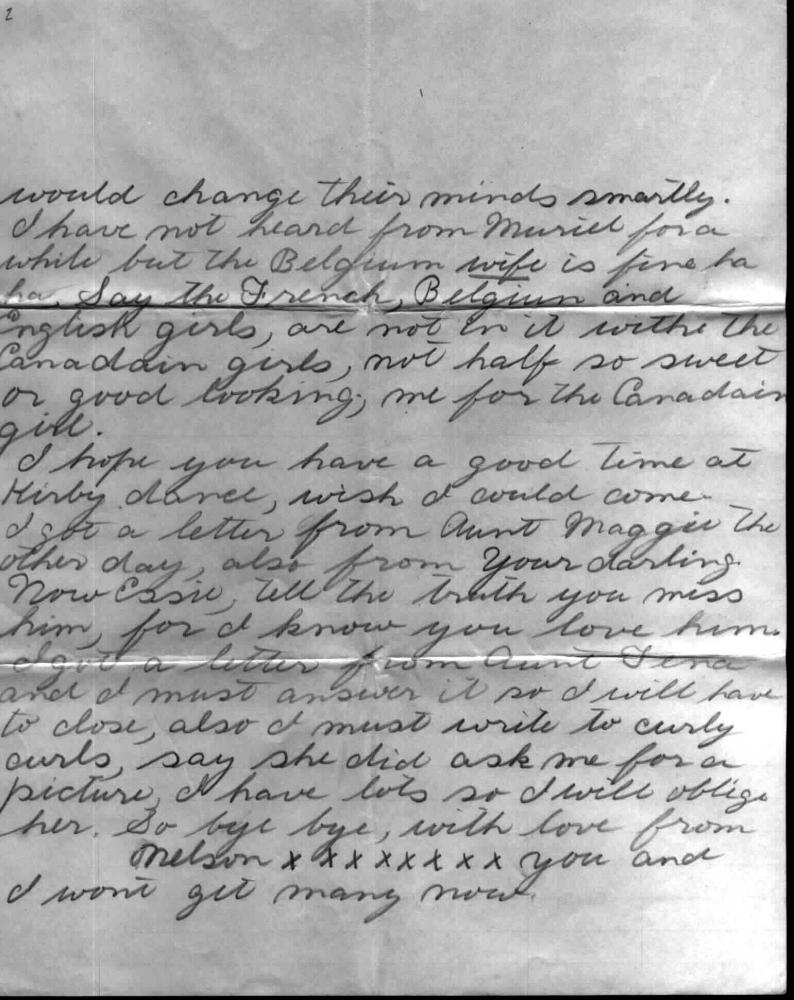 2
would change their minds smartly.
I have not heard from Muriel for a
while but the Belgium wife is fine ha
ha. Say the French, Belgium and
English girls, are not in it withe the
Canadain girls, not half so sweet
or good looking; me for the Canadain
girl.
I hope you have a good time at
Kirby dance, wish I could come.
I got a letter from Aunt Maggie the
other day, also from Your darling.
Now Essie, tell the truth you miss
him, for I know you love him.
I got a letter from Aunt Tena
and I must answer it so I will have
to close, also I must write to curly
curls, say she did ask me for a
picture, I have lots so I will oblige
her. So bye bye, with love from
Melson x x x x x x x x you and
I wont get many now.